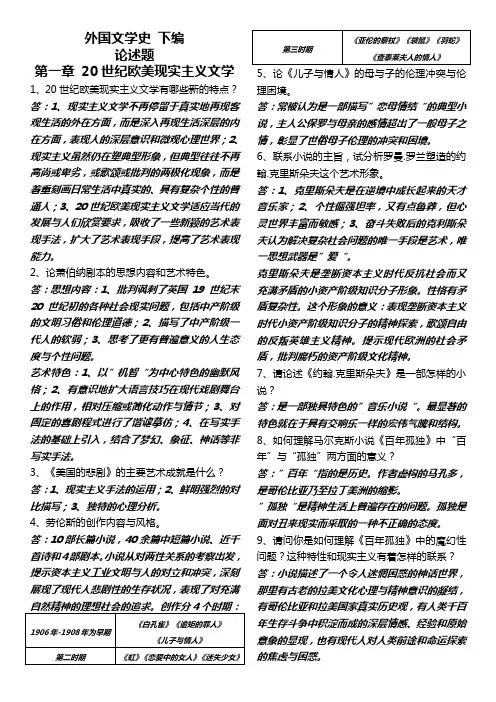 外国文学史 下编
论述题
第一章 20世纪欧美现实主义文学
1、20世纪欧美现实主义文学有哪些新的特点？
答：1、现实主义文学不再停留于真实地再现客
观生活的外在方面，而是深入再现生活深层的内
在方面，表现人的深层意识和微观心理世界；2、
现实主义虽然仍在塑造典型形象，但典型往往不再
高尚或卑劣，或歌颂或批判的两极化现象，而是
着重刻画日常生活中真实的、具有复杂个性的普
通人；3、20世纪欧美现实主义文学适应当代的
发展与人们欣赏要求，吸收了一些新颖的艺术表
现手法，扩大了艺术表现手段，提高了艺术表现
能力。
2、论萧伯纳剧本的思想内容和艺术特色。
答：思想内容：1、批判讽刺了英国19世纪末
20世纪初的各种社会现实问题，包括中产阶级
的文明习俗和伦理道德；2、描写了中产阶级一
代人的软弱；3、思考了更有普遍意义的人生态
度与个性问题。
艺术特色：1、以“机智“为中心特色的幽默风
格；2、有意识地扩大语言技巧在现代戏剧舞台
上的作用，相对压缩或简化动作与情节；3、对
固定的喜剧程式进行了谐谑摹仿；4、在写实手
法的基础上引入，结合了梦幻、象征、神话等非
写实手法。
3、《美国的悲剧》的主要艺术成就是什么？
答：1、现实主义手法的运用；2、鲜明强烈的对
比描写；3、独特的心理分析。
4、劳伦斯的创作内容与风格。
答：10部长篇小说，40余篇中短篇小说、近千
首诗和4部剧本。小说从对两性关系的考察出发，
提示资本主义工业文明与人的对立和冲突，深刻
展现了现代人悲剧性的生存状况，表现了对充满
自然精神的理想社会的追求。创作分4个时期：
1906年-1908年为早期 《白孔雀》《逾矩的罪人》
《儿子与情人》
第二时期 《虹》《恋爱中的女人》《迷失少女》
第三时期 《亚伦的藜杖》《袋鼠》《羽蛇》
《查泰莱夫人的情人》
5、论《儿子与情人》的母与子的伦理冲突与伦
理困境。
答：常被认为是一部描写“恋母情结“的典型小
说，主人公保罗与母亲的感情超出了一般母子之
情，彰显了世俗母子伦理的冲突和困境。
6、联系小说的主旨，试分析罗曼.罗兰塑造的约
翰.克里斯朵夫这个艺术形象。
答：1、克里斯朵夫是在逆境中成长起来的天才
音乐家；2、个性倔强坦率，又有点鲁莽，但心
灵世界丰富而敏感；3、奋斗失败后的克利斯朵
夫认为解决复杂社会问题的唯一手段是艺术，唯
一思想武器是”爱“。
克里斯朵夫是垄断资本主义时代反抗社会而又
充满矛盾的小资产阶级知识分子形象。性格有矛
盾复杂性。这个形象的意义：表现垄断资本主义
时代小资产阶级知识分子的精神探索，歌颂自由
的反叛英雄主义精神。提示现代欧洲的社会矛
盾，批判腐朽的资产阶级文化精神。
7、请论述《约翰.克里斯朵夫》是一部怎样的小
说？
答：是一部独具特色的“音乐小说“。最显著的
特色就在于具有交响乐一样的宏伟气魄和结构。
8、如何理解马尔克斯小说《百年孤独》中“百
年”与“孤独”两方面的意义？
答：“百年“指的是历史。作者虚构的马孔多，
是哥伦比亚乃至拉丁美洲的缩影。
”孤独“是精神生活上普遍存在的问题。孤独是
面对丑来现实而采取的一种不正确的态度。
9、请问你是如何理解《百年孤独》中的魔幻性
问题？这种特性和现实主义有着怎样的联系？
答：小说描述了一个令人迷惘困惑的神话世界，
那里有古老的拉美文化心理与精神意识的凝结，
有哥伦比亚和拉美国家真实历史观，有人类千百
年生存斗争中积淀而成的深层情感、经验和原始
意象的显现，也有现代人对人类前途和命运探索
的焦虑与困惑。